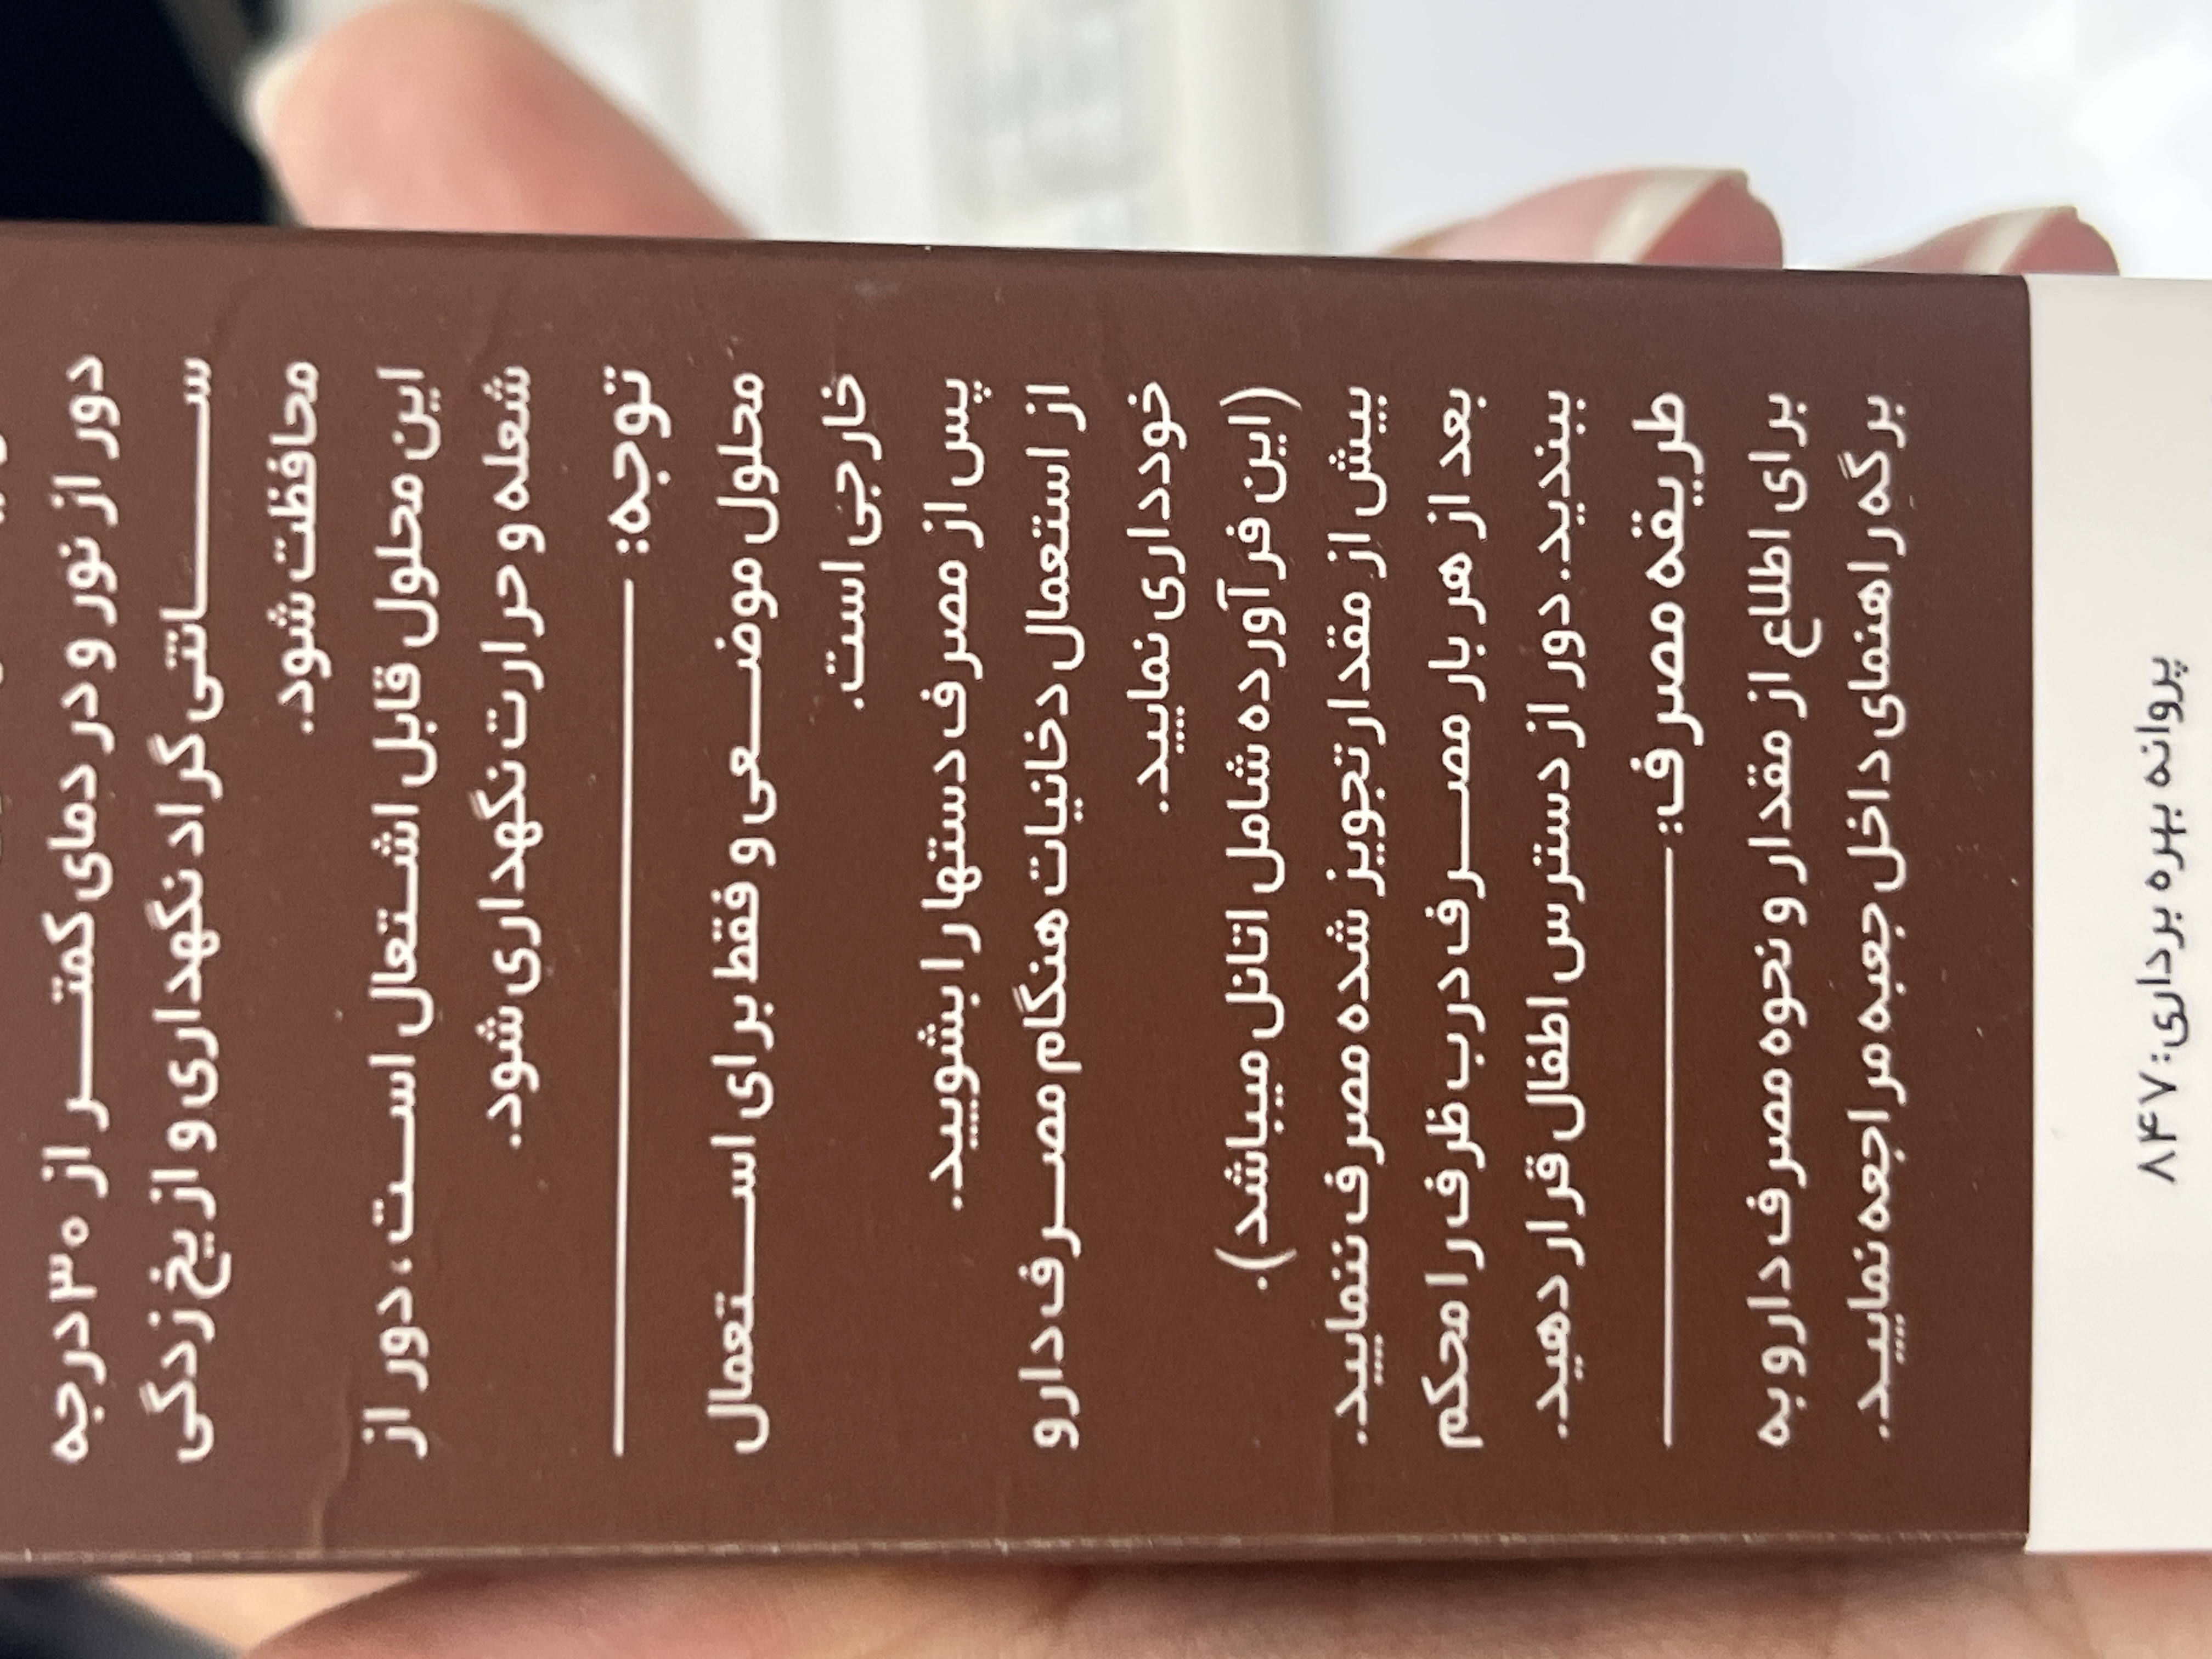 دور از نور و در دمای کمتر از ۳۰ درجه
سانتی گراد نگهداری و از یخ زدگی
محافظت شود.
این محلول قابل اشتعال است، دور از
شعله و حرارت نگهداری شود.
توجه:
محلول موضعی و فقط برای استعمال
خارجی است.
پس از مصرف دستها را بشویید.
از استعمال دخانیات هنگام مصرف دارو
خودداری نمایید.
(این فرآورده شامل اتانل میباشد).
بیش از مقدار تجویز شده مصرف ننمایید.
بعد از هر بار مصرف درب ظرف را محکم
ببندید. دور از دسترس اطفال قرار دهید.
طریقه مصرف:
برای اطلاع از مقدار و نحوه مصرف دارو به
برگه راهنمای داخل جعبه مراجعه نمایید.
پروانه بهره برداری: ۸۴۷